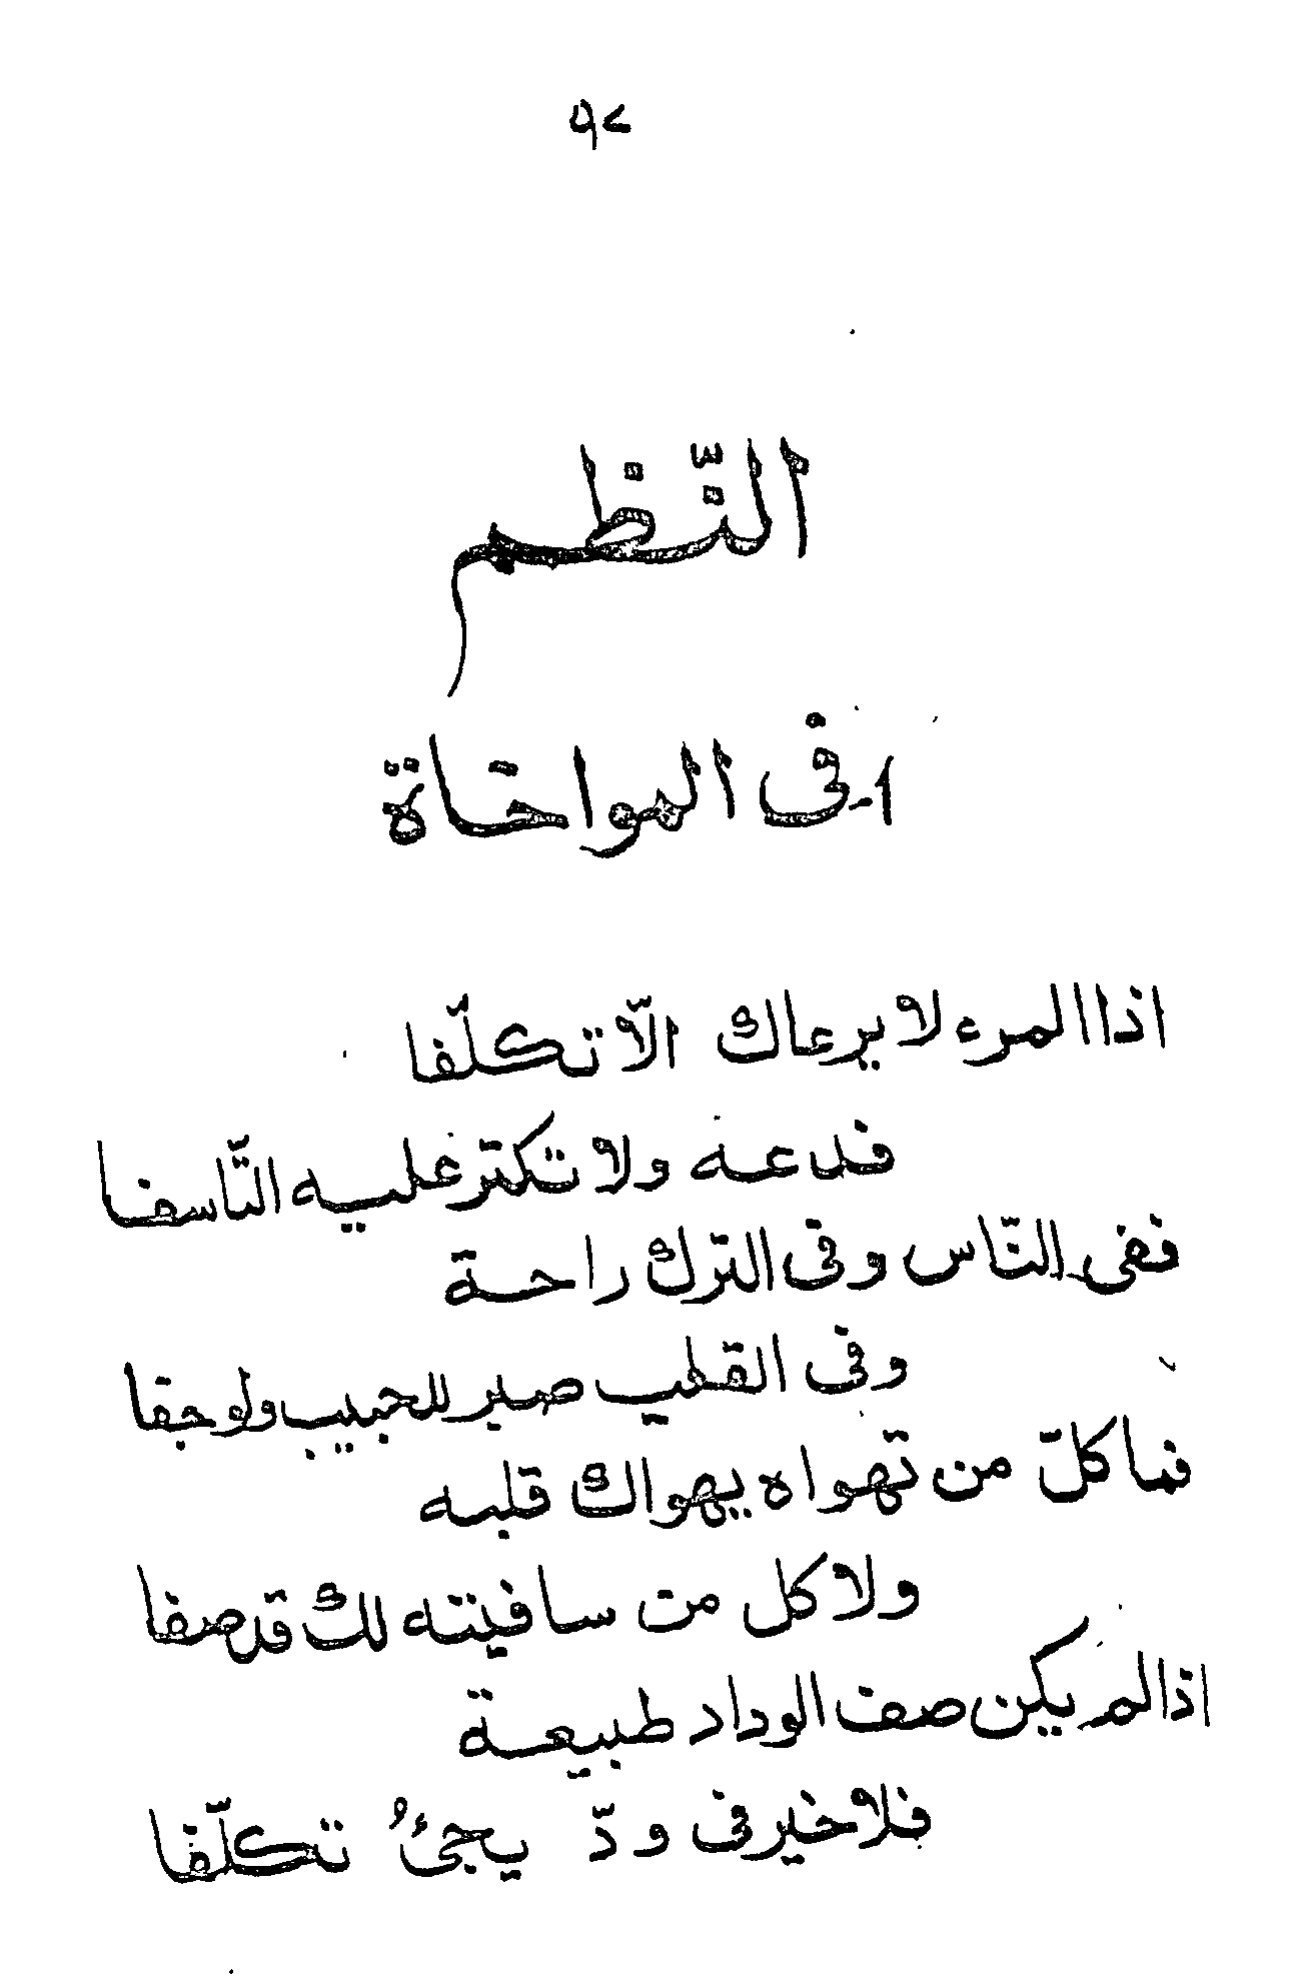 ٩٢
النّظم
١- في المواخاة
اذا المرء لا يرعاك الّا تكلّفا
فدعه ولا تكثر عليه التّاسفا
ففي النّاس وفي الترك راحة
وفي القلب صبر للحبيب ولو جفا
فما كلّ من تهواه يهواك قلبه
ولا كل من سافيته لك قد صفا
اذا لم يكن صف الوداد طبيعة
فلا خير في ودّ يجئُ تكلّفا